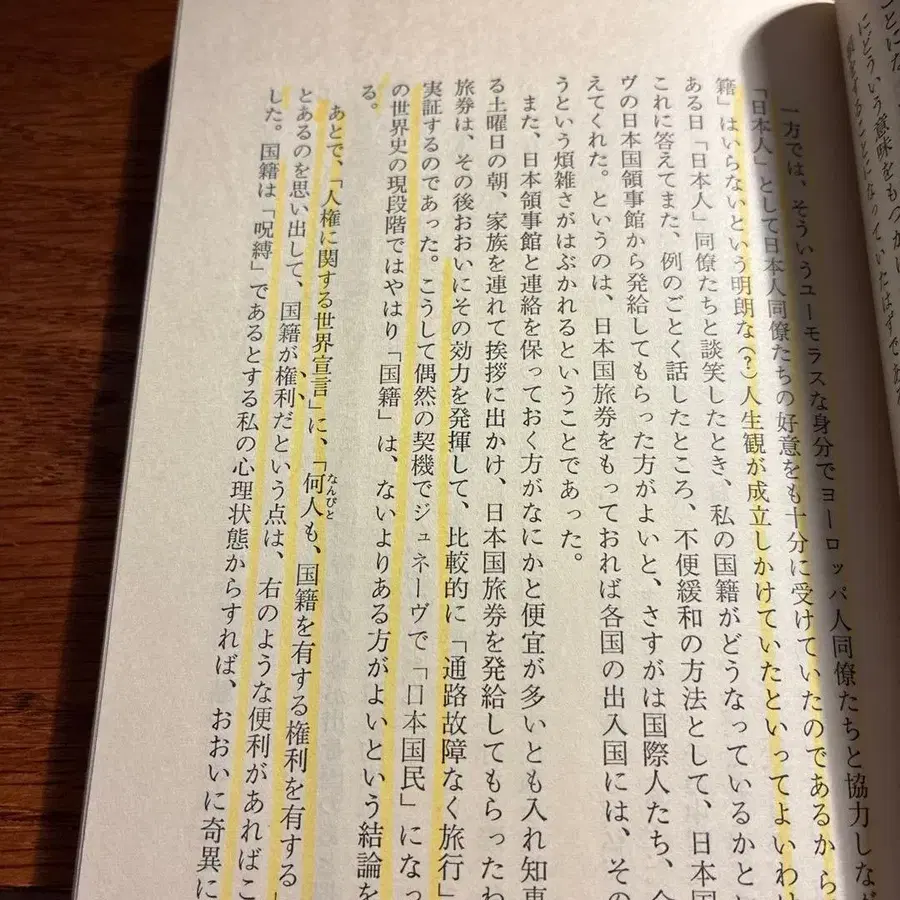 ことにな
にどういう意味をもつかに
になっていたはずであ
一方では、そういうユーモラスな身分でヨーロッパ人同僚たちと協力しなが
「日本人」として日本人同僚たちの好意をも十分に受けていたのであるから
籍」はいらないという明朗な(?)人生観が成立しかけていたといってよいわけ
ある日「日本人」同僚たちと談笑したとき、私の国籍がどうなっているかと
これに答えてまた、例のごとく話したところ、不便緩和の方法として、日本国
ヴの日本国領事館から発給してもらった方がよいと、さすがは国際人たち、
えてくれた。というのは、日本国旅券をもっておれば各国の出入国には、その
うという煩雑さがはぶかれるということであった。
また、日本領事館と連絡を保っておく方がなにかと便宜が多いとも入れ知恵
る土曜日の朝、家族を連れて挨拶に出かけ、日本国旅券を発給してもらったわ
旅券は、その後おおいにその効力を発揮して、比較的に「通路故障なく旅行」
実証するのであった。こうして偶然の契機でジュネーヴで「日本国民」になっ
の世界史の現段階ではやはり「国籍」は、ないよりある方がよいという結論を
る。
あとで、「人権に関する世界宣言」に、「何人も、国籍を有する権利を有する」
なんぴと
とあるのを思い出して、国籍が権利だという点は、右のような便利があればこ
した。国籍は「呪縛」であるとする私の心理状態からすれば、おおいに奇異に